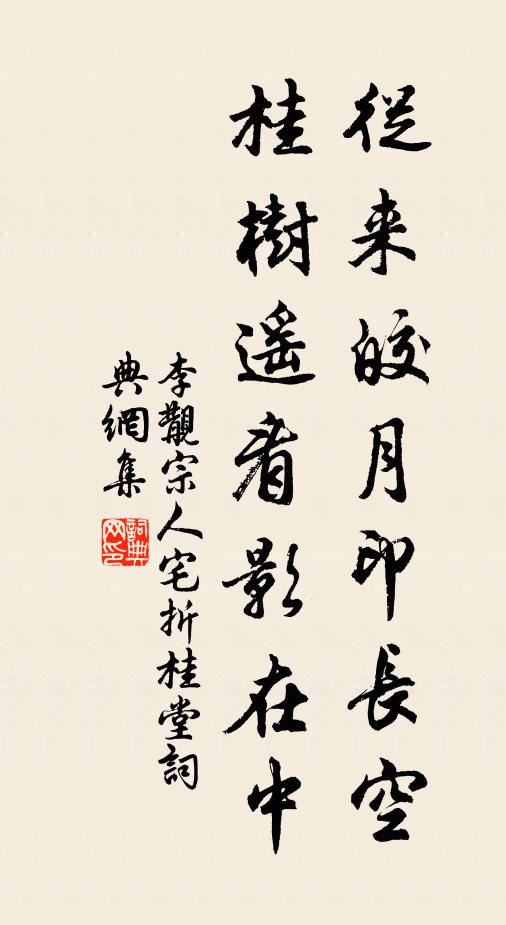 從来皎月印長空
桂樹遥看影在中
李觀宗人宅折桂堂詞
典網集
詞典網印